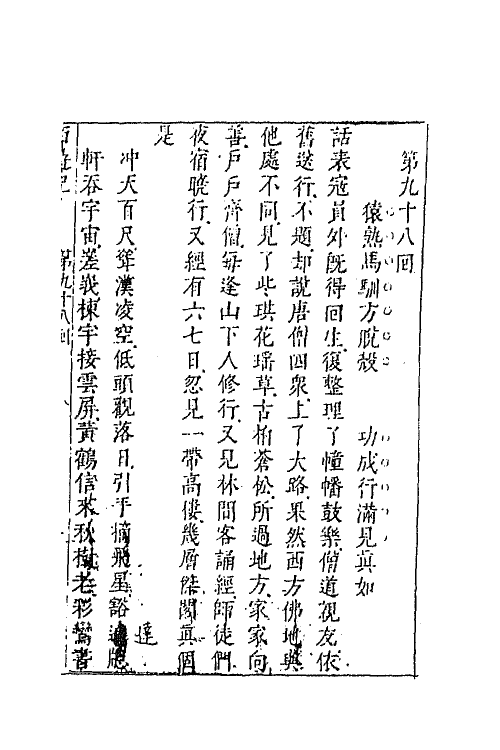 第九十八回
猿熟馬馴方脫殼　功成行滿見真如
話表寇員外既得回生復整理了幢幡鼓樂僧道親友依
舊送行不題却說唐僧四衆上了大路果然西方佛地與
他處不同見了些琪花瑶草古柏蒼松所過地方家家向
善戶戶齊僧每逢山下人修行又見林間客誦經師徒們
夜宿曉行又經有六七日忽見一帶高樓幾層傑閣眞個
是
冲天百尺聳漢凌空低頭觀落日引手摘飛星豁達
軒吞宇宙嵳峩棟宇接雲屏黃鶴信來秋樹老彩鸞書
西遊記　第九十八回